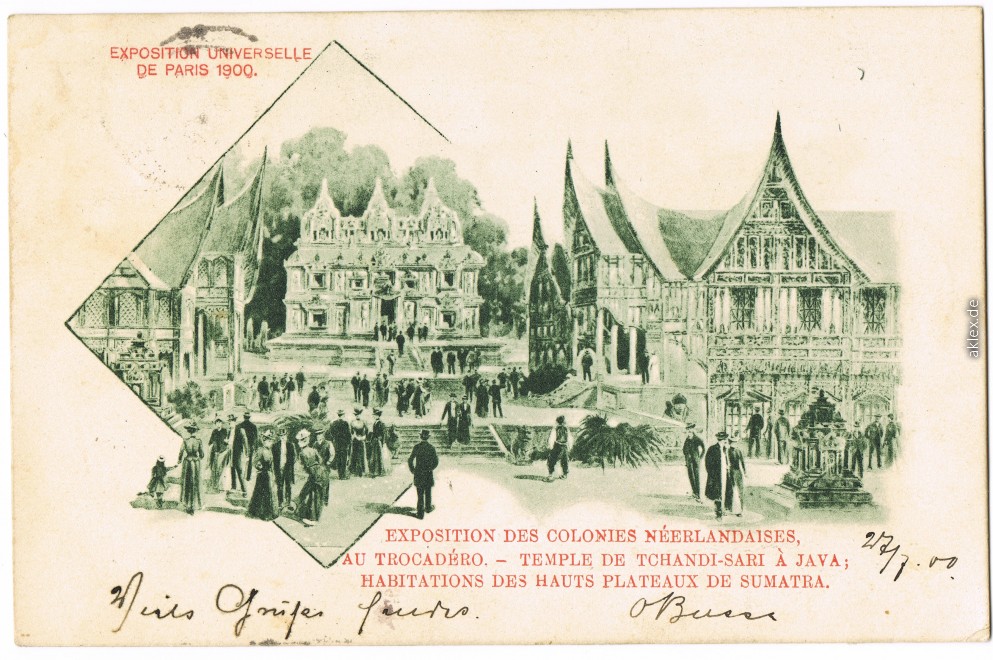 EXPOSITION UNIVERSELLE
DE PARIS 1900.
EXPOSITION DES COLONIES NÉERLANDAISES,
AU TROCADÉRO. – TEMPLE DE TCHANDI-SARI À JAVA;
HABITATIONS DES HAUTS PLATEAUX DE SUMATRA.
27/7.00
Viele Grüße
aklex.de